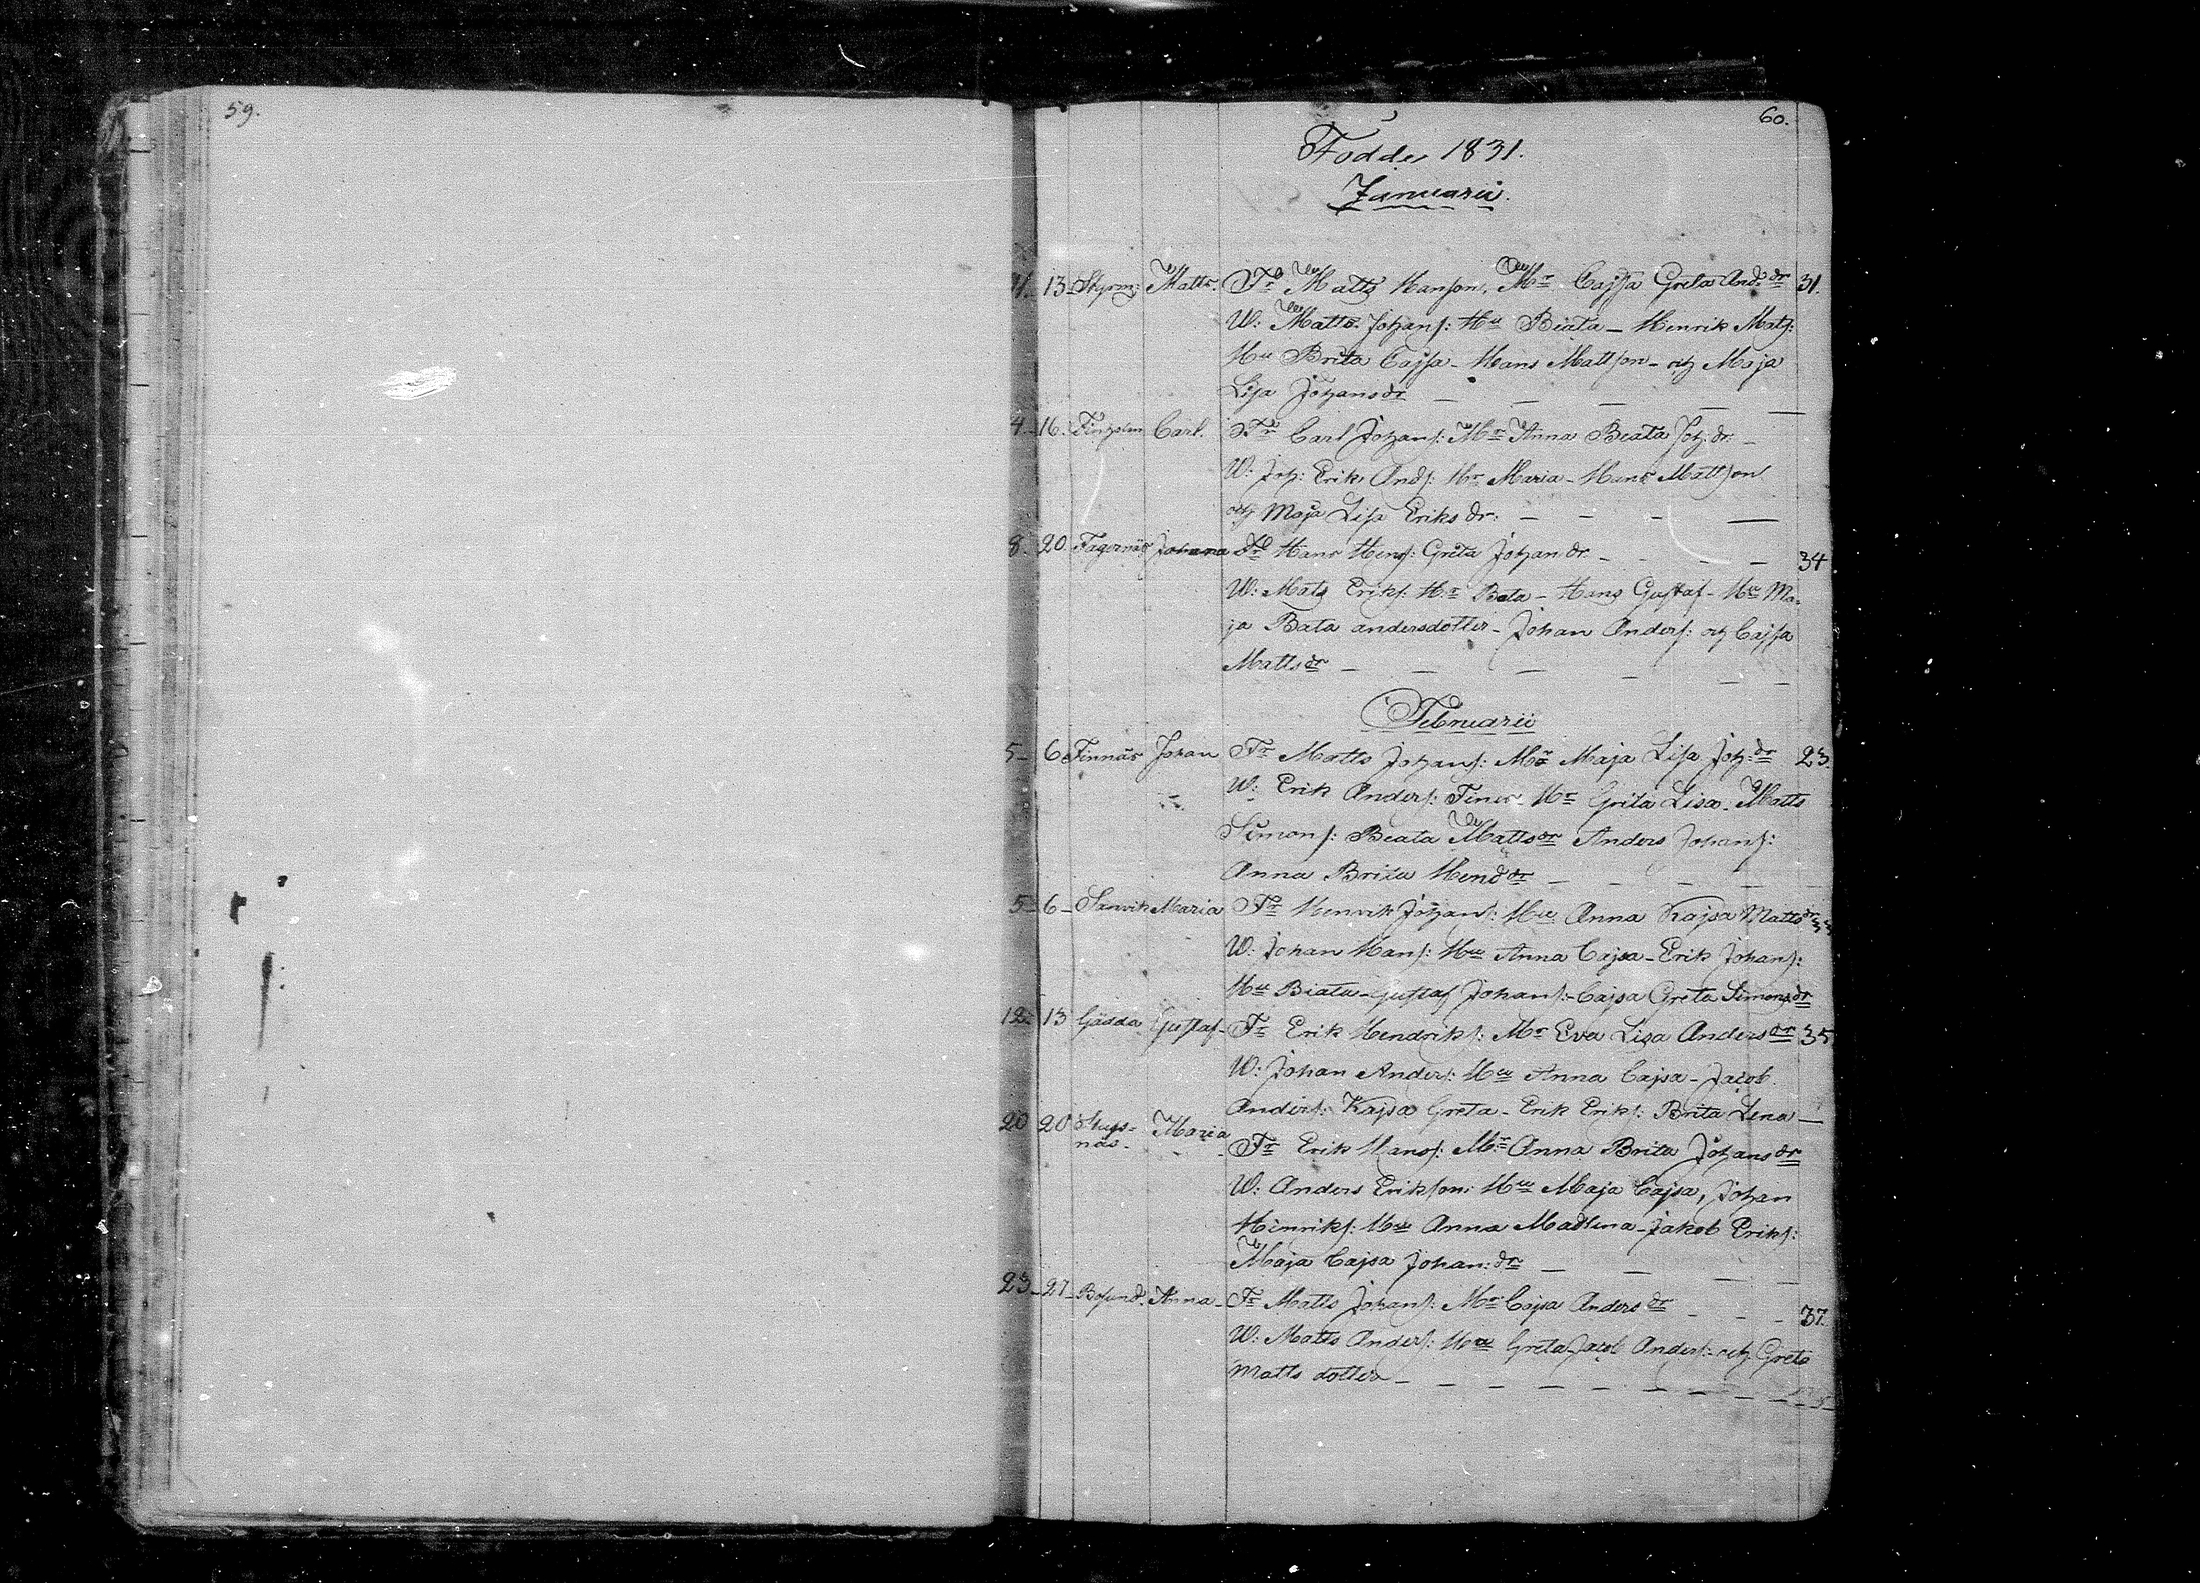 59.
60.
Födde 1831.
Januarii.
11. 13. Styrm: Matts. Fr Matts Hanson, Mr Cajsa Greta And. dr 31.
W: Matts Johans: Hu Biata _ Henrik Mats:
Hu Brita Cajsa _ Hans Mattson _ och Maja
Lisa Johansdr
4. 16. Finholm Carl. Fr Carl Johans: Mr Anna Beata Joh: dr.
W: Joh: Erik Ands: Hr Maria _ Hans Mattson
och Maja Lisa Eriks dr:
8. 20. Fagernäs Johana Fr Hans Hens: Greta Johan dr 34
W: Mats Eriks: Hr Bata _ Hans Gustaf _ Hu Ma-
ja Bata andersdotter _ Johan Anders: och Cajsa
Mattsdr
Februarii
5 _ 6 Finnäs Johan Fr Matts Johans: Mr Maja Lisa Joh: dr 23.
W: Erik Anders: Hr Greta Lisa _ Matts
Simons: Beata Mattsdr Anders Johans:
Anna Brita Hend dr
5 _ 6 _ Sanvik Maria Fr Henrik Johans: Mu Anna Kajsa Matts dr 33
W: Johan Hans: Hu Anna Cajsa _ Erik Johans:
Hu Biata _ Gustaf Johans: _ Cajsa Greta Simonsdr
12. 13 Gädda Gustaf _ Fr Erik Hendriks: Mr Eva Lisa Andersdr 35
W: Johan Anders: Hu Anna Cajsa _ Jacob
Anders: Kajsa Greta _ Erik Eriks: Brita Lena _
20 20 Skags=
näs _ Maria Fr Erik Hans: Mr Anna Brita Johansdr
W: Anders Erikson: Hu Maja Cajsa, Johan
Henriks: Hu Anna Madlena _ Jakob Eriks:
Maja Cajsa Johan: dr
23 _ 27 _ Bosund. Anna _ Fr Matts Johans: Mr Cajsa Anders dr 37.
W: Matts Anders: Hu Greta _ Jacob Anders: och Greta
Matts dotter _